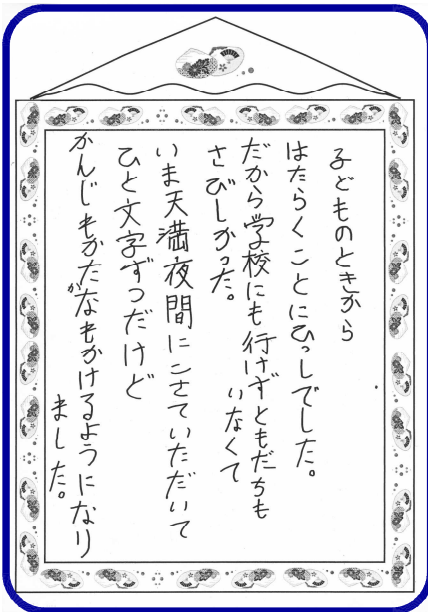 子どものときから
はたらくことにひっしでした。
だから学校にも行けずともだちも
いなくて
さびしかった。
いま天満夜間にこさていただいて
ひと文字ずつだけど
かんじもかたかなもかけるようになり
ました。